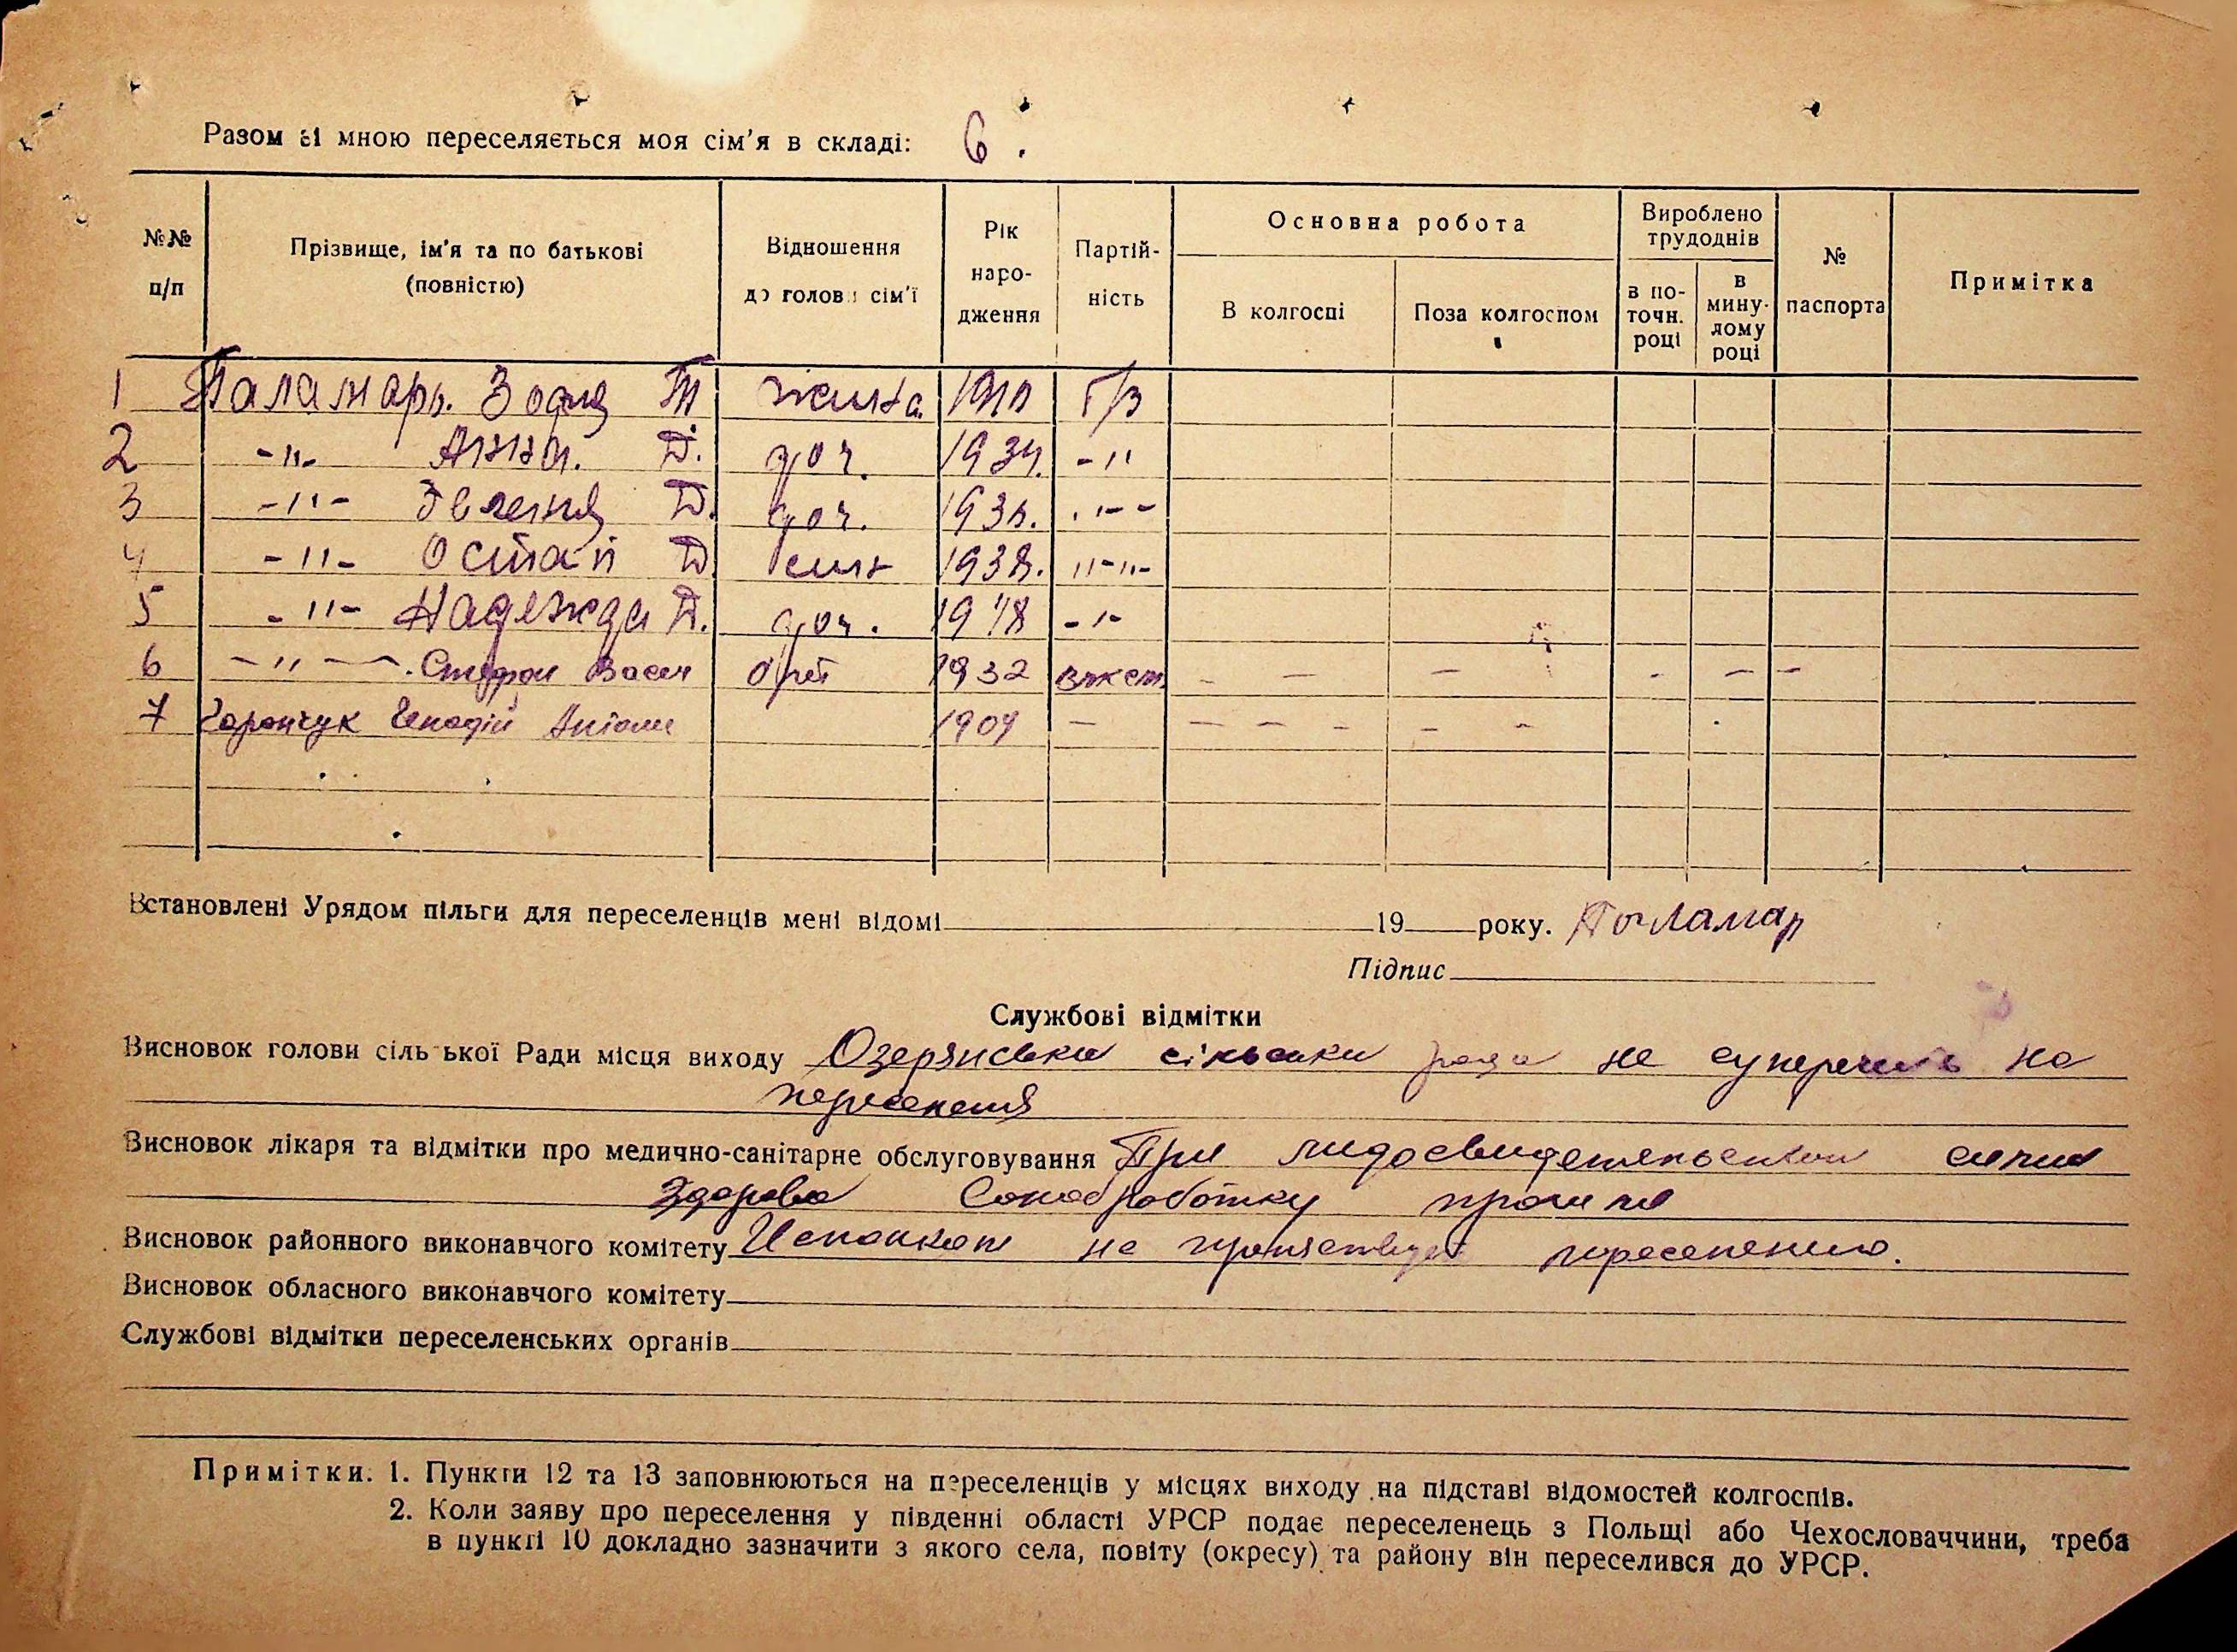 Разом зі мною переселяється моя сім'я в складі: 6.
№№ п/п
Прізвище, ім'я та по батькові (повністю)
Відношення до голови сім'ї
Рік народження
Партійність
Основна робота
В колгоспі
Поза колгоспом
Вироблено трудоднів
в поточн. році
в минулому році
№ паспорта
Примітка
1 Паламарь Зофія Т жинка 1910 Б/з
2 -"- Анна. Д. доч. 1934. -"
3 -"- Д. доч. 193 . -"-
4 -"- Остап Д син 1938. "-"-
5 -"- Надежда Д. доч. 1948 -"-
6 -"- Стефан Васил брат 1932 - - - - - -
7 Генадій Антон 1909 - - - - - -
Встановлені Урядом пільги для переселенців мені відомі 19 року. Паламар
Підпис
Службові відмітки
Висновок голови сільської Ради місця виходу Озерянська сільська рада не суперечить на
переселення
Висновок лікаря та відмітки про медично-санітарне обслуговування При
здорова Санобработку прошла
Висновок районного виконавчого комітету Исполком не препятствует переселению.
Висновок обласного виконавчого комітету
Службові відмітки переселенських органів
Примітки: 1. Пункти 12 та 13 заповнюються на переселенців у місцях виходу на підставі відомостей колгоспів.
2. Коли заяву про переселення у південні області УРСР подає переселенець з Польщі або Чехословаччини, треба
в пункті 10 докладно зазначити з якого села, повіту (окресу) та району він переселився до УРСР.